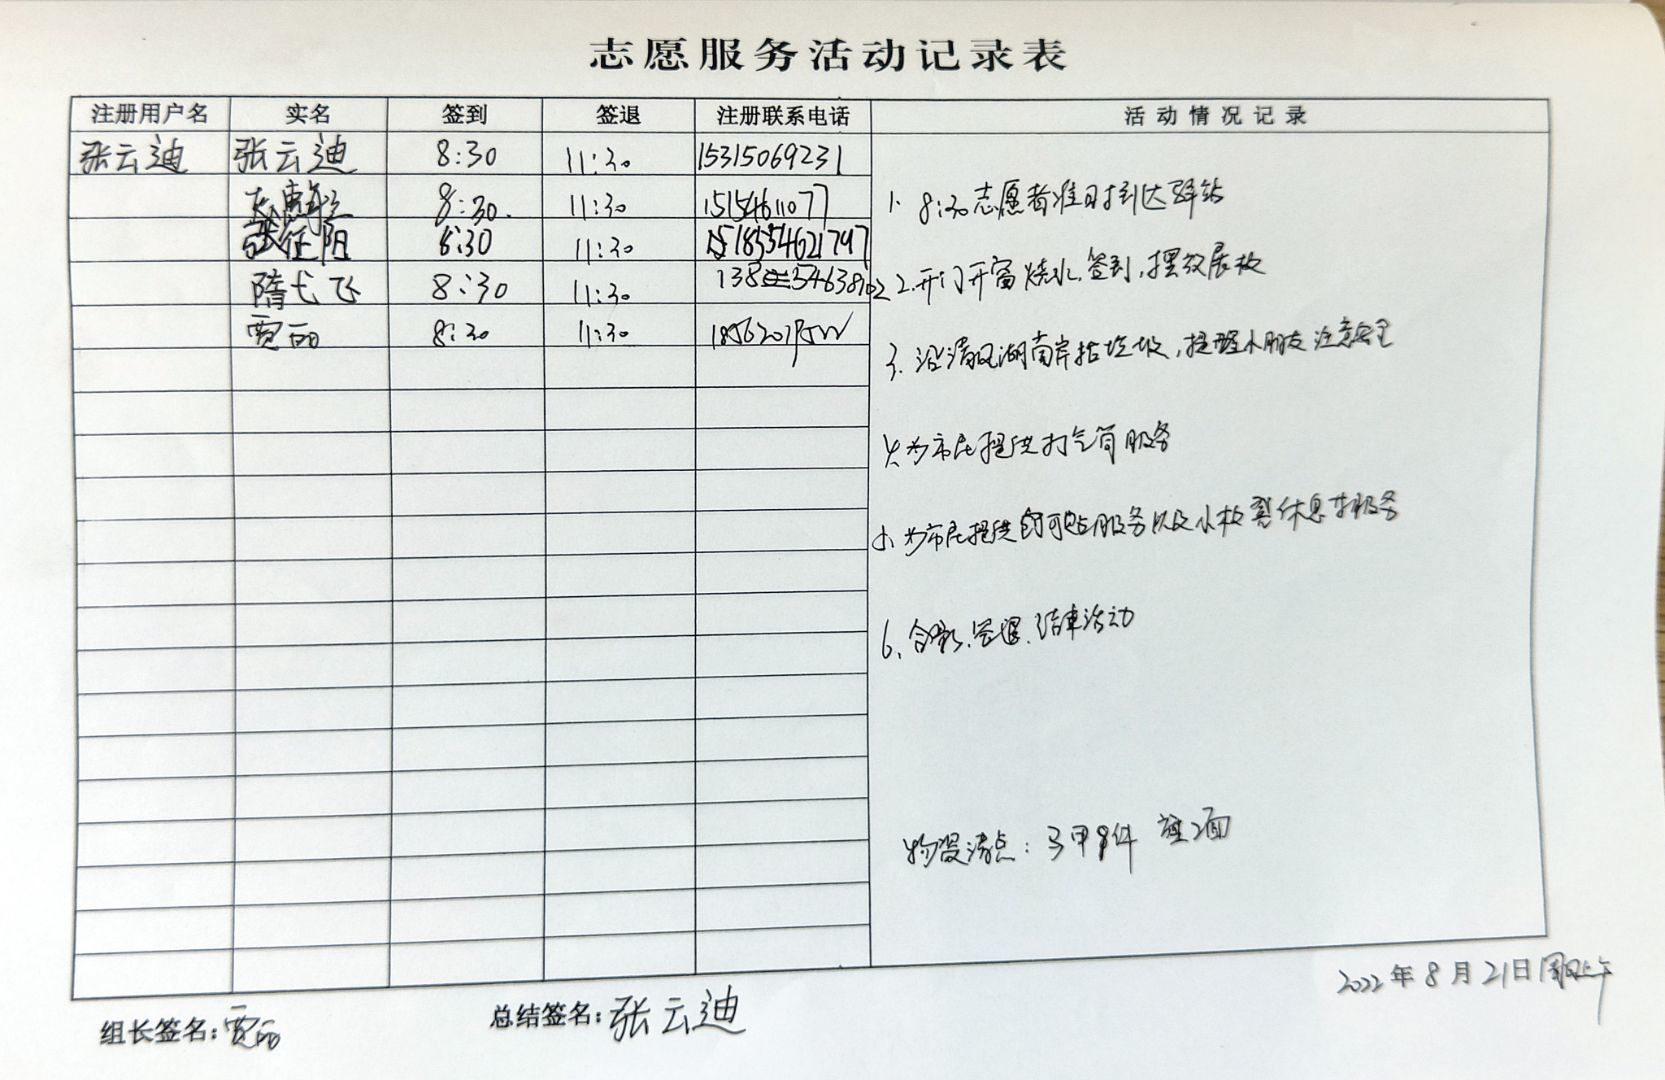 志愿服务活动记录表
注册用户名 实名 签到 签退 注册联系电话 活动情况记录
张云迪 张云迪 8:30 11:30 15315069231
8:30. 11:30 15154611077
张征阳 8:30 11:30 18554621797
隋弋飞 8:30 11:30
贾丽 8:30 11:30
1. 8:30志愿者准时到达驿站
2.开门开窗烧水.签到,摆放展板
3.沿清风湖南岸捡垃圾,提醒小朋友注意安全
4.为市民提供打气筒服务
5.为市民提供创可贴服务以及小板凳休息等服务
6.合影.签退.结束活动
物资清点:马甲9件 旗2面
2022年8月21日周日上午
组长签名:贾丽 总结签名:张云迪